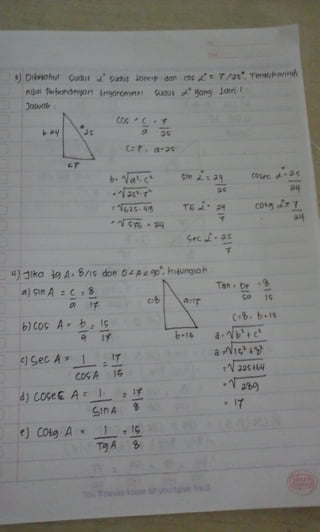 3) Diketahui sudut α° sudut lancip dan cos α° = 7/25°. Tentukanlah
nilai Perbandingan trigonometri sudut α° yang lain!
Jawab :
b=24
a=25
c=7
cos = c/a = 7/25
c=7, a=25
b= √a²-c²
= √25²-7²
= √625-49
= √576 = 24
Sin α° = 24/25
TG α° = 24/7
Sec α° = 25/7
Cosec α° = 25/24
Cotg α° = 7/24
4) Jika tg A = 8/15 dan 0<A<90°, hitunglah :
a) Sin A = c/a = 8/17
b) Cos A = b/a = 15/17
c) Sec A = 1/cos A = 17/15
d) Cosec A = 1/Sin A = 17/8
e) Cotg A = 1/Tg A = 15/8
c=8
a=17
b=15
Tan = De/Sa = 8/15
c=8, b=15
a=√b²+c²
a=√15²+8²
=√225+64
=√289
= 17
You'll never know till you have tried